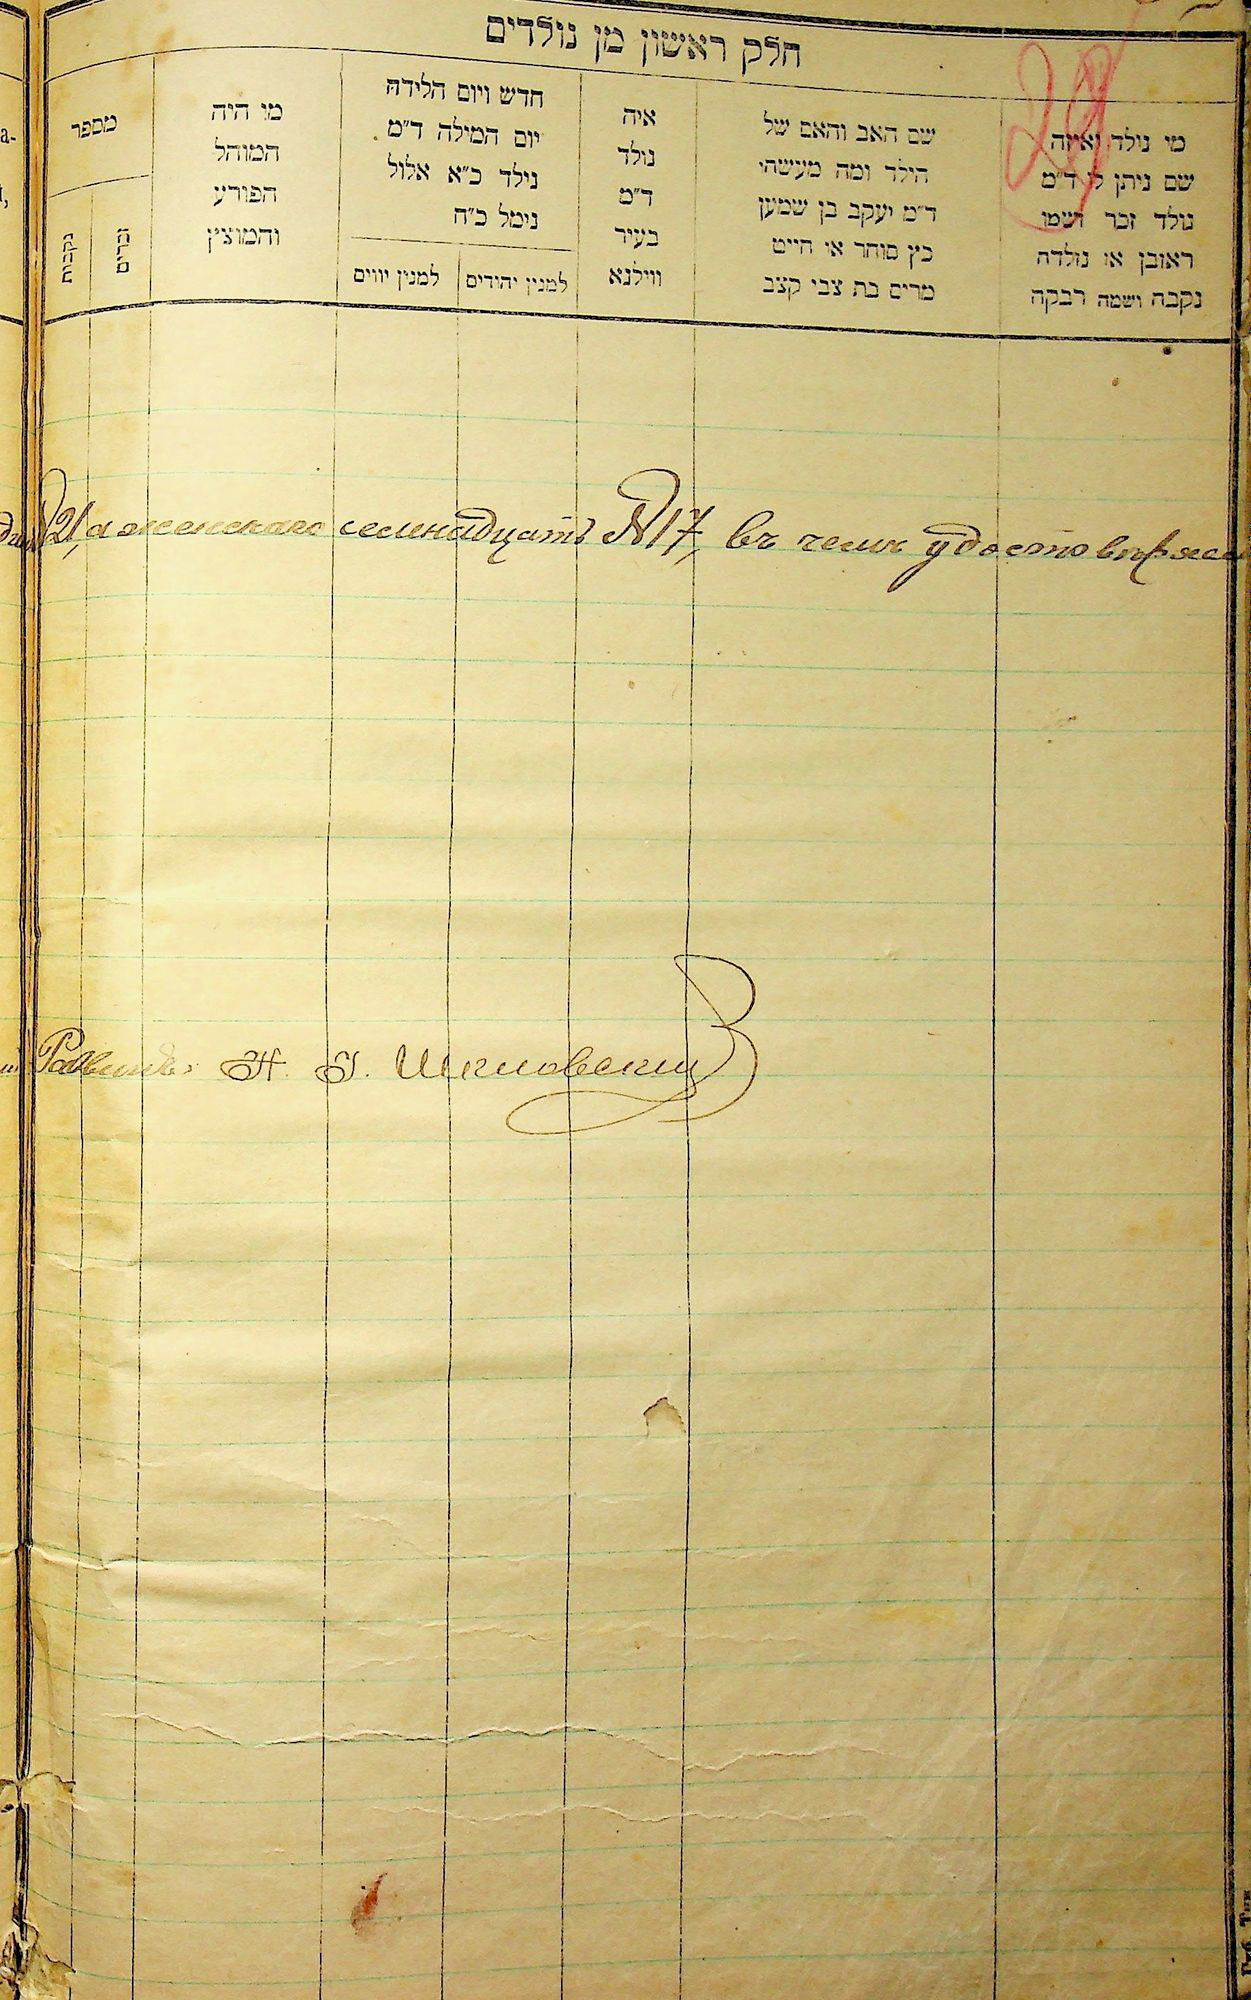 חלק ראשון מן נולדים
29
מי נולד ואיזה
שם ניתן לו ד״מ
נולד זכר ושמו
ראובן או נולדה
נקבה ושמה רבקה
שם האב והאם של
הילד ומה מעשהו
ד״מ יעקב בן שמעון
כץ סוחר או חייט
מרים בת צבי קצב
איה
נולד
ד״מ
בעיר
ווילנא
חדש ויום הלידה
יום המילה ד״מ
נילד כ״א אלול
נימל כ״ח
למנין יהודים
למנין יווים
מי היה
המוהל
הפורע
והמוצץ
מספר
זכרים
נקבות
№ 21, а женскаго семнадцать № 17, въ чемъ удостовѣряе
Раввинъ: Н. І. Шкловскій